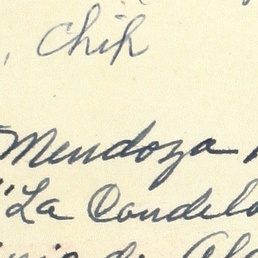 , Chih
Mendoza
"La Candela
de